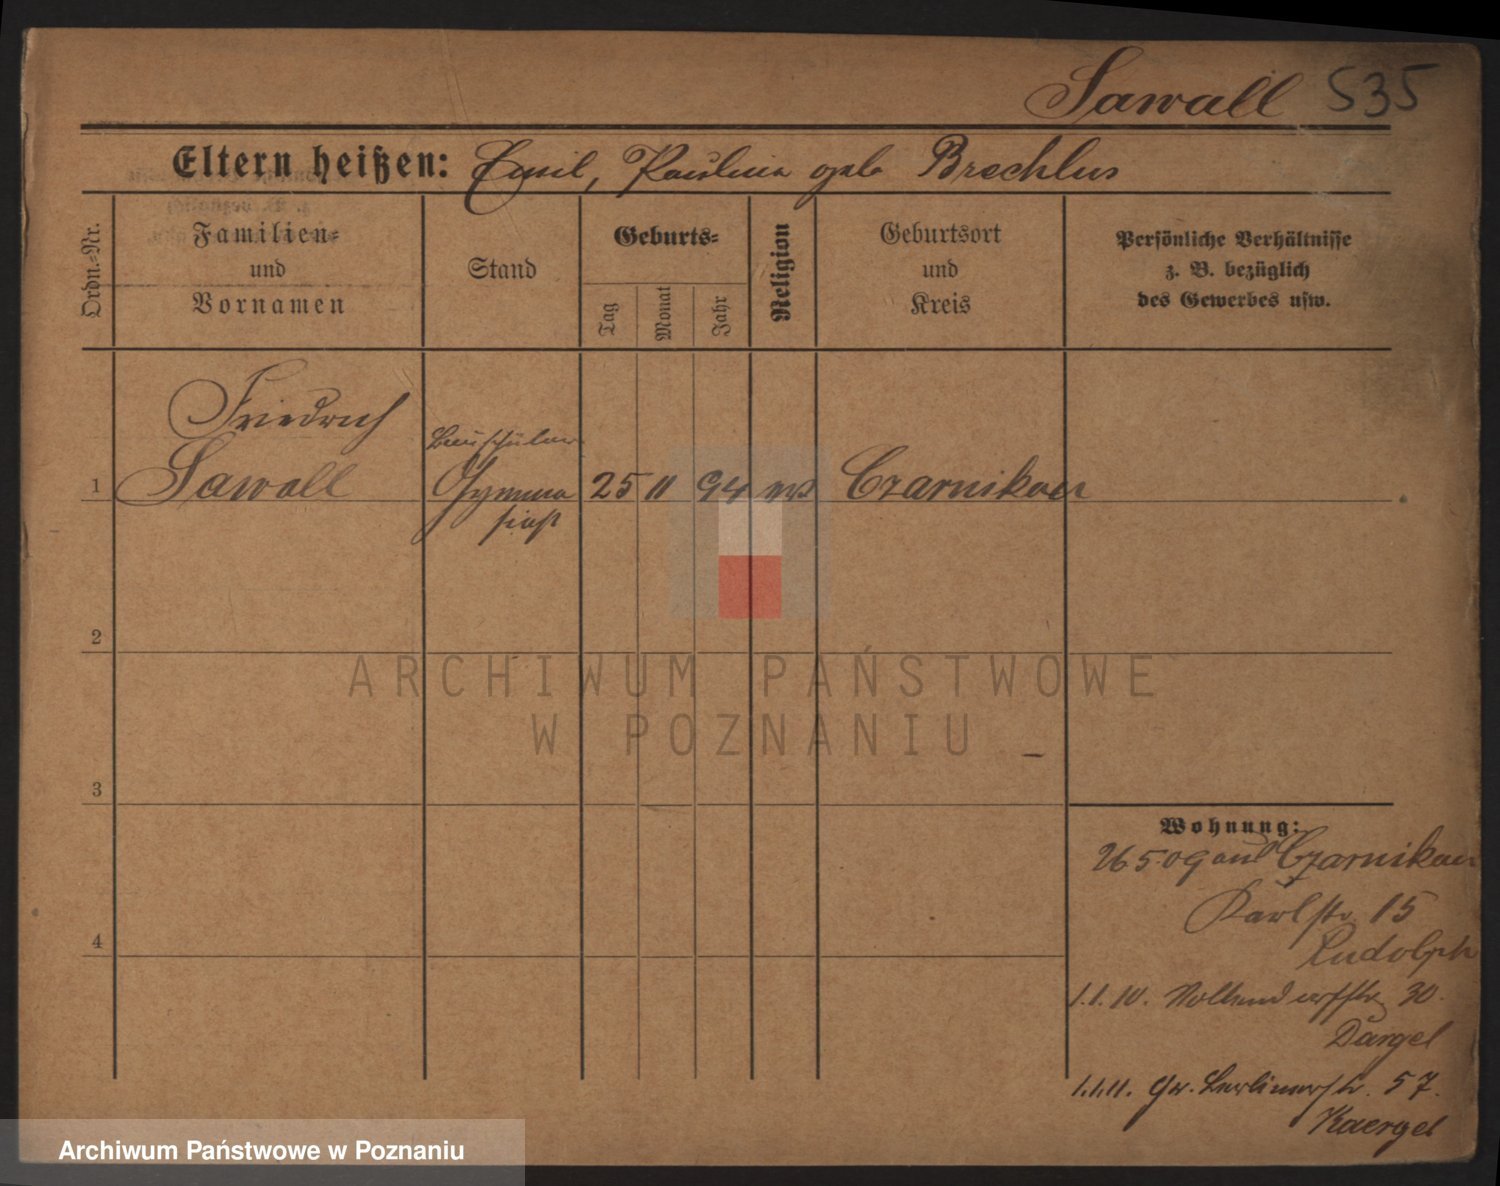 Sawall 535
Eltern heißen: Emil, Paulina geb Brechlus
Ordn.-Nr.
Familien-
und
Vornamen
Stand
Geburts-
Tag
Monat
Jahr
Religion
Geburtsort
und
Kreis
Persönliche Verhältnisse
z. B. bezüglich
des Gewerbes usw.
Friedrich
Bauschüler
1 Sawall Gymna 25 11 94 Czarnikau
siast
2
3
4
Wohnung:
26 5 09 aus Czarnikau
Karlstr. 15
Rudolph
1.1.10. 30.
Dargel
1.1.11. Gr. Berlinerstr. 57.
Kaergel
ARCHIWUM PAŃSTWOWE
W POZNANIU
Archiwum Państwowe w Poznaniu